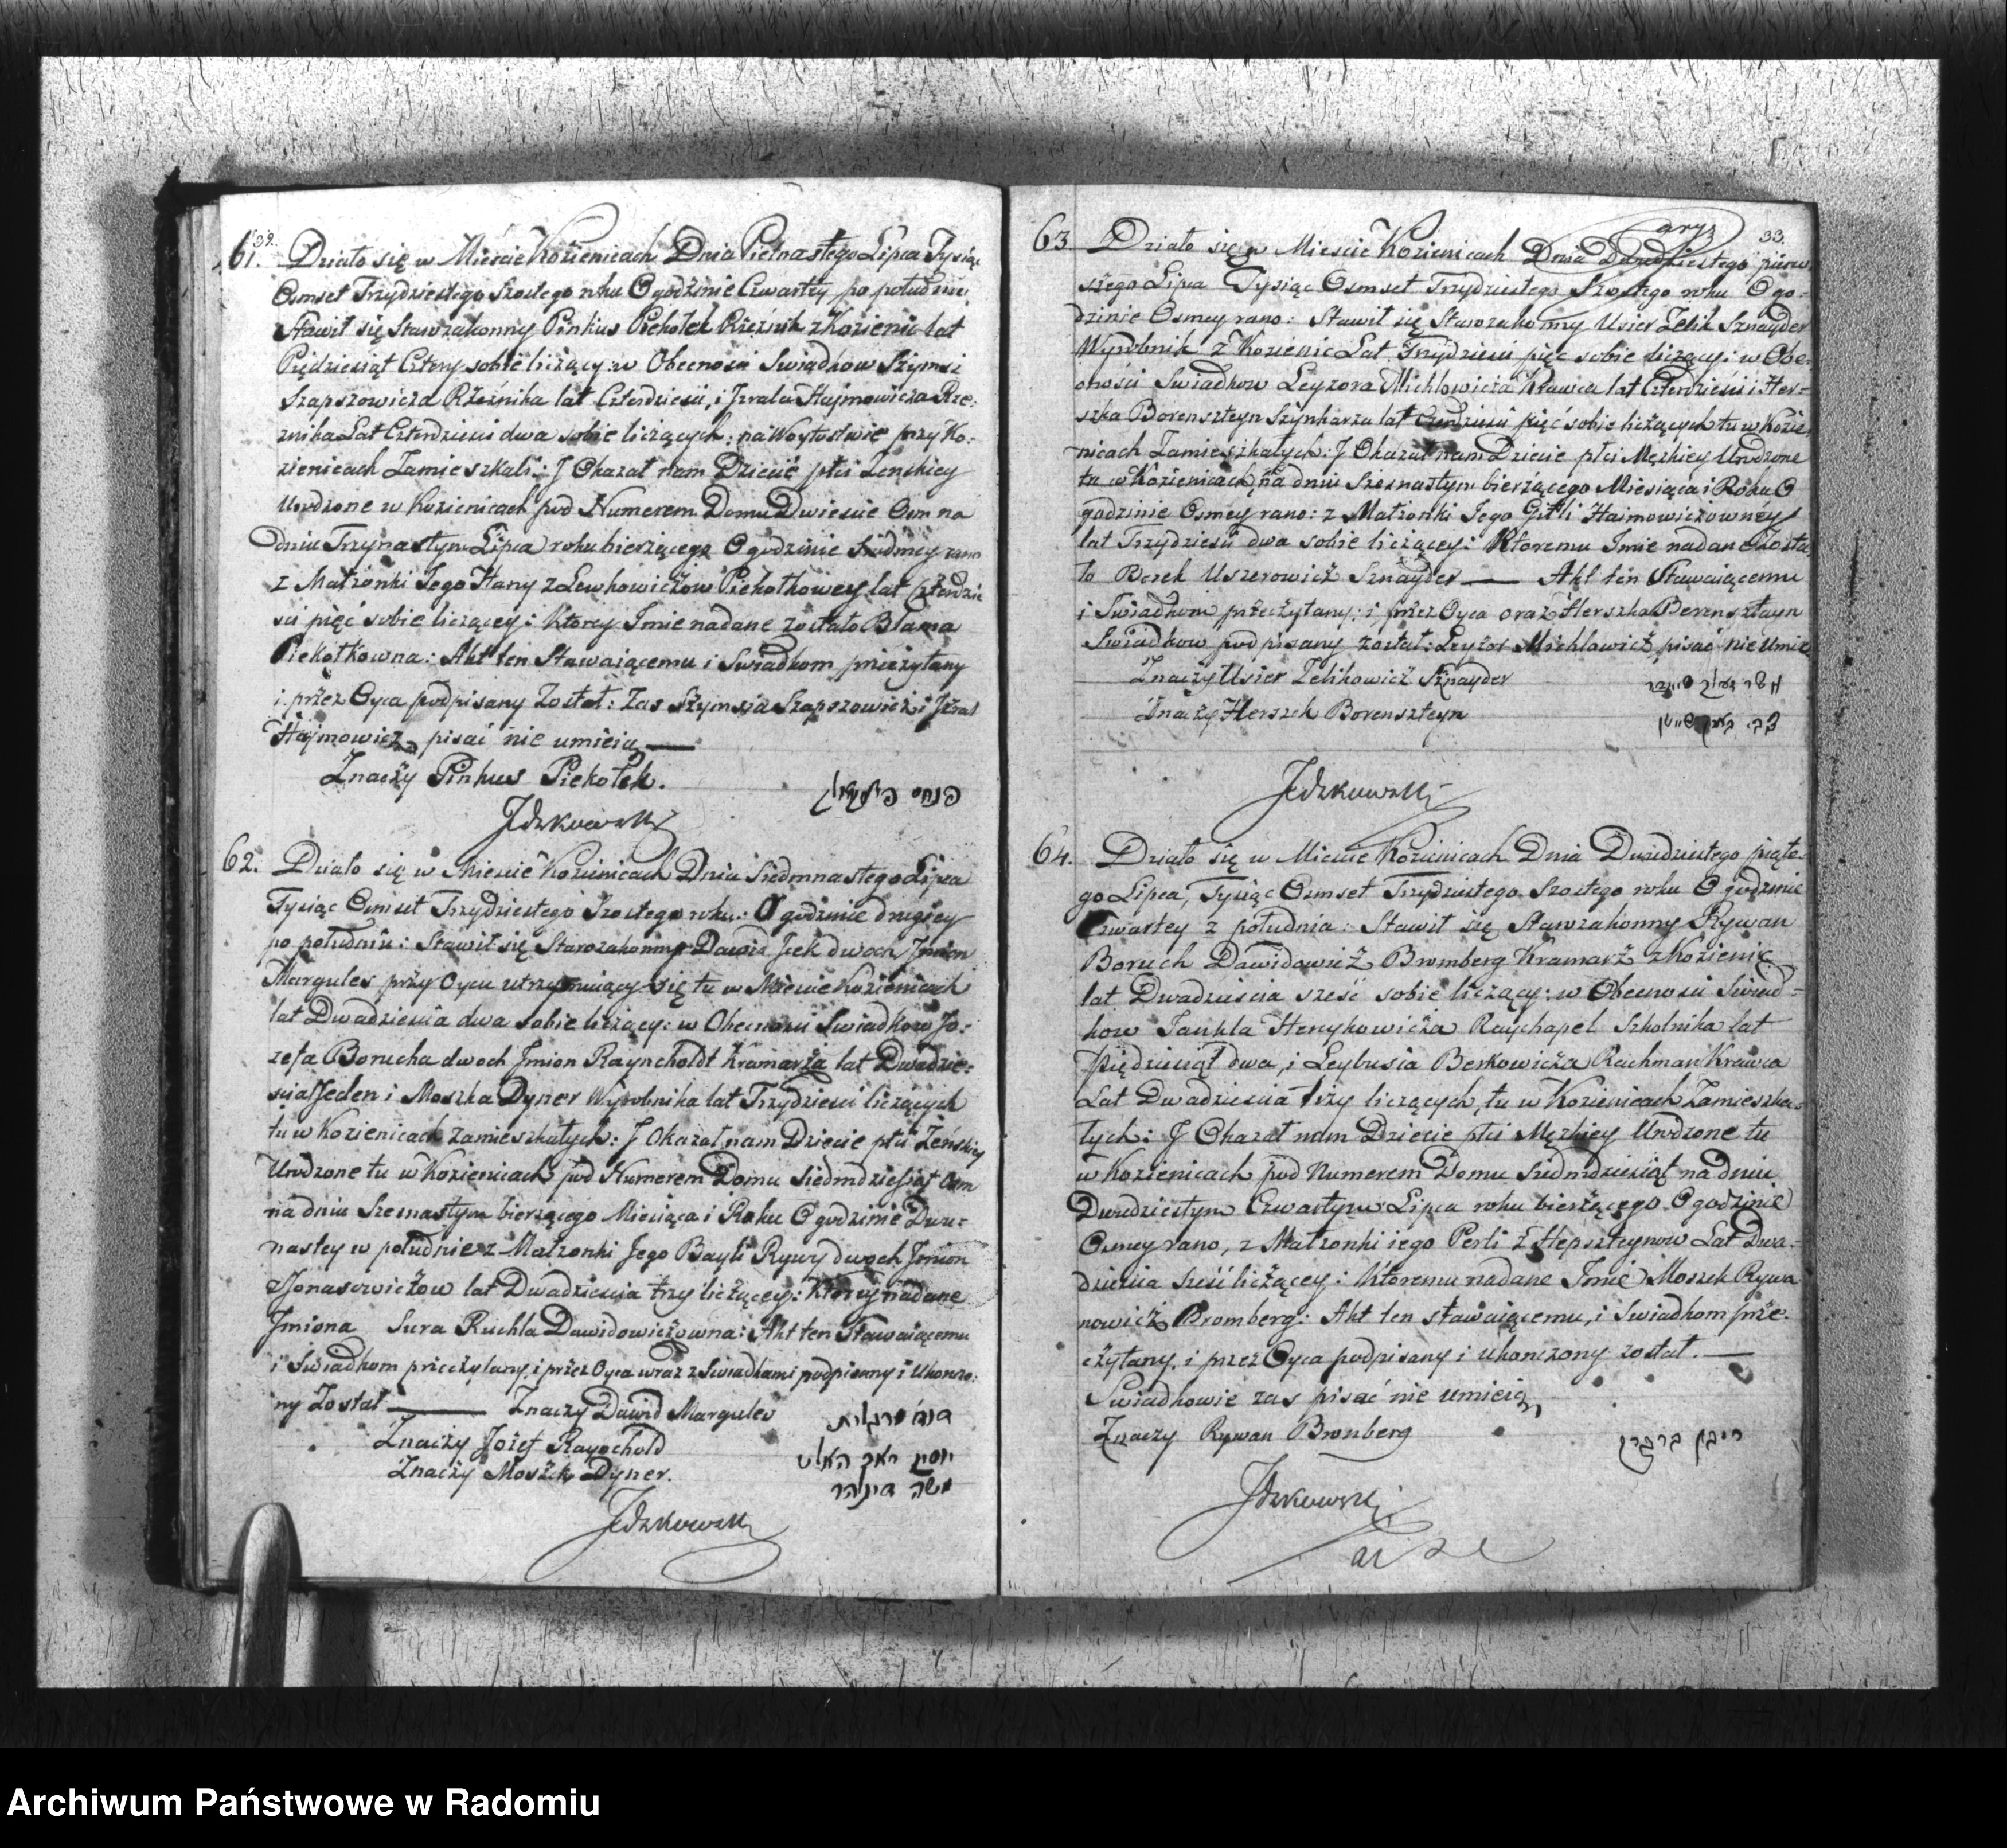 32.
61. Działo się w Mieście Kozienicach Dnia Pietnastego Lipca Tysiąc
Osmset Trzydziestego Szostego roku O godzinie Czwartey po południu
Stawił się Starozakonny Pinkus Piekołek Rzeżnik z Kozienic lat
Pięćdziesiąt Cztery sobie liczący: w Obecności Swiadkow Szymsi
Szapszowicza Rżeźnika lat Czterdzieści, i Izrala Hajmowicza Rze-
znika Lat Czterdzieści dwa sobie liczących: na Woytostwie przy Ko-
zienicach Zamieszkali: J Okazał nam Dziecie płci Zenskiey
Urodzone w Kozienicach pod Numerem Domu Dwiescie Osm na
dniu Trzynastym Lipca roku bierzącego O godzinie Siodmey rano
z Małżonki Jego Hany z Lewkowiczów Piekołkowey lat Czterdzie
sci pięć sobie liczącey: Ktorey Imie nadane zostało Blama
Piekołkowna: Akt ten Stawaiącemu i Swiadkom przeczytany
i przez Oyca podpisany Został: Zas Szymsia Szapszowicz i Izral
Hajmowicz pisać nie umieią
Znaczy Pinkus Piekołek. פנחס
Idzkowski
62. Działo się w Miescie Kozienicach Dnia Siedmnastego Lipca
Tysiąc Osmset Trzydziestego Szostego roku: O godzinie drugiey
po południu: Stawił się Starozakonny Dawid Icek dwoch Imion
Margules przy Oycu utrzymuiący się tu w Miescie Kozienicach
lat Dwadziescia dwa sobie liczący: w Obecnosci Swiadkow Jo-
zefa Borucha dwoch Imion Rayncholdt Kramarza lat Dwadzie-
scia Jeden i Moszka Dyner Wyrobnika lat Trzydzieści liczących
tu w Kozienicach zamieszkałych: J Okazał nam Dziecie płci Żeńskiey
Urodzone tu w Kozienicach pod Numerem Domu Siedmdziesiąt Osm
na dniu Szesnastym bierzącego Miesiąca i Roku O godzinie Dwu-
nastey w południe z Małzonki Jego Bayli Rywy dwoch Imion
z Jonasowiczow lat Dwadziescia trzy liczącey: Ktorey nadane
Imiona Sura Ruchla Dawidowiczowna: Akt ten Stawaiącemu
i Swiadkom przeczytany, i przez Oyca wraz z Swiadkami podpisany i Ukonczo-
ny Został Znaczy Dawid Margules
Znaczy Jozef Raynchold יוסף
Znaczy Moszek Dyner. משה
Idzkowski
33.
63 Działo się w Miescie Kozienicach Dnia Dwudziestego pierw-
szego Lipca Tysiąc Osmset Trzydziestego Szostego roku O go-
dzinie Osmey rano: Stawił się Starozakonny Usier Zelik Sznayder
Wyrobnik z Kozienic Lat Trzydzieści pięc sobie liczący: w Obe-
cności Swiadkow Leyzora Michlowicza Krawca lat Czterdzieści i Her-
szka Borenszteyn Szynkarza lat Czterdzieści pięć sobie liczących tu w Kozie-
nicach Zamieszkałych: J Okazał nam Dziecie płci Męzkiey Urodzone
tu w Kozienicach, na dniu Szesnastym bierzącego Miesiąca i Roku O
godzinie Osmey rano: z Małzonki Jego Gitli Haimowiczowney
lat Trzydzieści dwa sobie liczącey: Ktoremu Imie nadane Zosta
ło Berek Uszerowicz Sznayder Akt ten Stawaiącemu
i Swiadkom przeczytany: i przez Oyca oraz Herszka Berensztayn
Swiadkow podpisany został: Leyzor Michlowicz pisać nie Umie
Znaczy Usier Zelikowicz Sznayder אשר
Znaczy Herszek Borenszteyn צבי
Idzkowski
64. Działo się w Miescie Kozienicach Dnia Dwudziestego piąte-
go Lipca, Tysiąc Osmset Trzydziestego Szostego roku O godzinie
Czwartey z południa: Stawił się Starozakonny Rywan
Boruch Dawidowicz Bromberg Kramarz z Kozienic
lat Dwadziescia sześć sobie liczący: w Obecnosci Swiad-
kow Jankla Henykowicza Raychapel Szkolnika lat
Pięćdziesiąt dwa, i Leybusia Berkowicza Rachman Krawca
Lat Dwadziescia trzy liczących, tu w Kozienicach Zamieszka-
łych: J Okazał nam Dziecie płci Męzkiey Urodzone tu
w Kozienicach pod Numerem Domu Siedmdziesiąt na dniu
Dwudziestym Czwartym Lipca roku bierzącego O godzinie
Osmey rano, z Małzonki iego Perli z Hepszteynow Lat Dwa-
dziescia sześć liczącey: Ktoremu nadane Imie Moszek Rywa
nowicz Bromberg: Akt ten stawaiącemu, i Swiadkom prze-
czytany, i przez Oyca podpisany i ukonczony został.
Swiadkowie zas pisać nie umieią,
Znaczy Rywan Bromberg ריבן
Idzkowski
Archiwum Państwowe w Radomiu